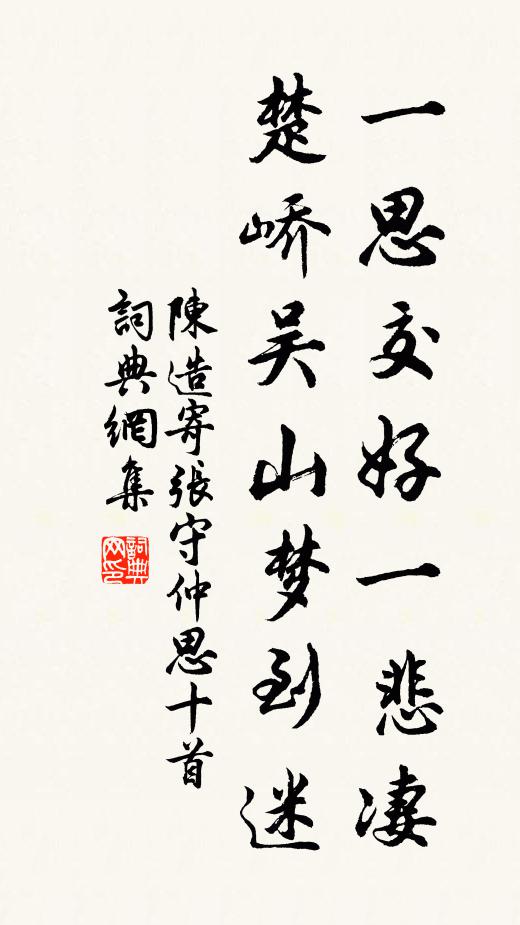 一思交好一悲凄
楚峤吴山梦到迷
陳造寄張守仲思十首
詞典網集
詞典网印